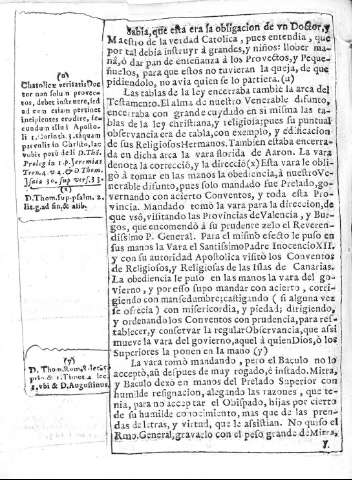 sabia, que esta era la obligacion de vn Doctor, y
Maestro de la verdad Catolica, pues entendia, que
por tal debia instruyr à grandes, y niños: llober ma-
nà, ò dar pan de enseñanza à los Provectos, y Peque-
ñuelos, para que estos no tuvieran la queja, de que
pidiendolo, no avia quien se lo partiera. (u)
Las tablas de la ley encerraba tambiē la arca del
Testamento. El alma de nuestro Venerable difunto,
encerraba con grande cuydado en su misma las ta-
blas de la ley christiana, y religiosa; pues su puntual
observancia era de tabla, con exemplo, y edificacion
de sus Religiosos Hermanos. Tambien estaba encerra-
da en dicha arca la vara florida de Aaron. La vara
denota la correcciō, y la direcciō (x) Esta vare le obli-
gò à tomar en las manos la obediencia, à nuestro Ve-
nerable difunto, pues solo mandado fue Prelado, go-
vernando con acierto Conventos, y toda esta Pro-
vincia. Mandado tomò la vara para la direccion, de
que vsò, visitando las Provincias de Valencia, y Bur-
gos, que encomendò à su prudente zelo el Reveren-
dissimo P. General. Para el mismo efecto le puso en
sus manos la Vara el Santissimo Padre Inocencio XII.
y con su autoridad Apostolica visitò los Conventos
de Religiosos, y Religiosas de las Islas de Canarias.
La obediencia le puso en las manos la vara del go-
vierno, y por esso supo mandar con acierto, corri-
giendo con mansedumbre; castigando (si alguna vez
se ofrecia) con misericordia, y piedad; dirigiendo,
y ordenando los Conventos con prudencia, para res-
tablecer, y conservar la regular Observancia, que assi
mueve la vara del govierno, aquel à quien Dios, ò los
Superiores la ponen en la mano (y)
La vara tomò mandando, pero el Baculo no lo
acceptò, aū despues de muy rogado, è instado. Mitra,
y Baculo dexò en manos del Prelado Superior con
humilde resignacion, alegando las razones, que te-
nia, para no acceptar el Obispado, hijas por cierto
de su humilde conocimiento, mas que de las pren-
das de letras, y virtud, que le assistian. No quiso el
Rmo. General, gravarlo con el peso grande de Mitra,
Y.
(u)
Chatolicæ veritatis Doc-
tor non solum provec-
tos, debet instruere, sed
ad eum etiam pertinet
incipientes erudire, se-
cundum illud Apostó-
li 1. Corinth. 3. tāquam
parvulis in Christo, lac
vobis potū dedi D. Th.
(x)
D. Thom. sup. psalm. 2.
(y)
2, vbi & D. Augustinus.